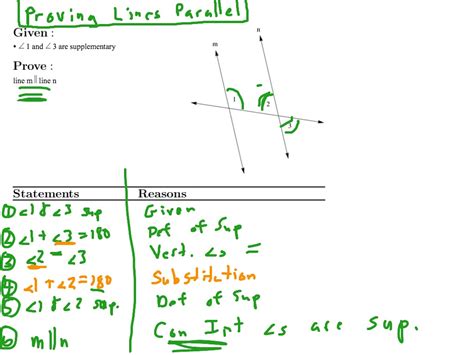 Proving Lines Parallel
Given :
• ∠1 and ∠3 are supplementary
Prove :
line m ∥ line n
m
n
1
2
3
Statements Reasons
① ∠1 & ∠3 sup Given
② ∠1 + ∠3 = 180 Def of Sup
③ ∠2 = ∠3 Vert. ∠s =
④ ∠1 + ∠2 = 180 Substitution
⑤ ∠1 & ∠2 sup. Def of Sup
⑥ m∥n Con Int ∠s are sup.